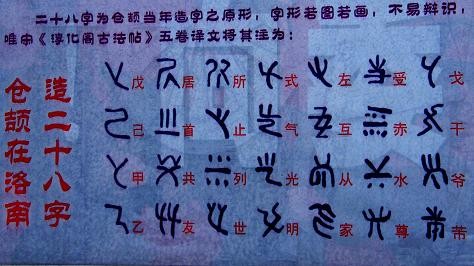 二十八字为仓颉当年造字之原形，字形若图若画，不易辩识，
唯宋《淳化阁古法帖》五卷译文将其注为：
仓颉在洛南
造二十八字
戊己甲乙
居首共友
所止列世
式气光明
左互从家
受赤水尊
戈干爷芾